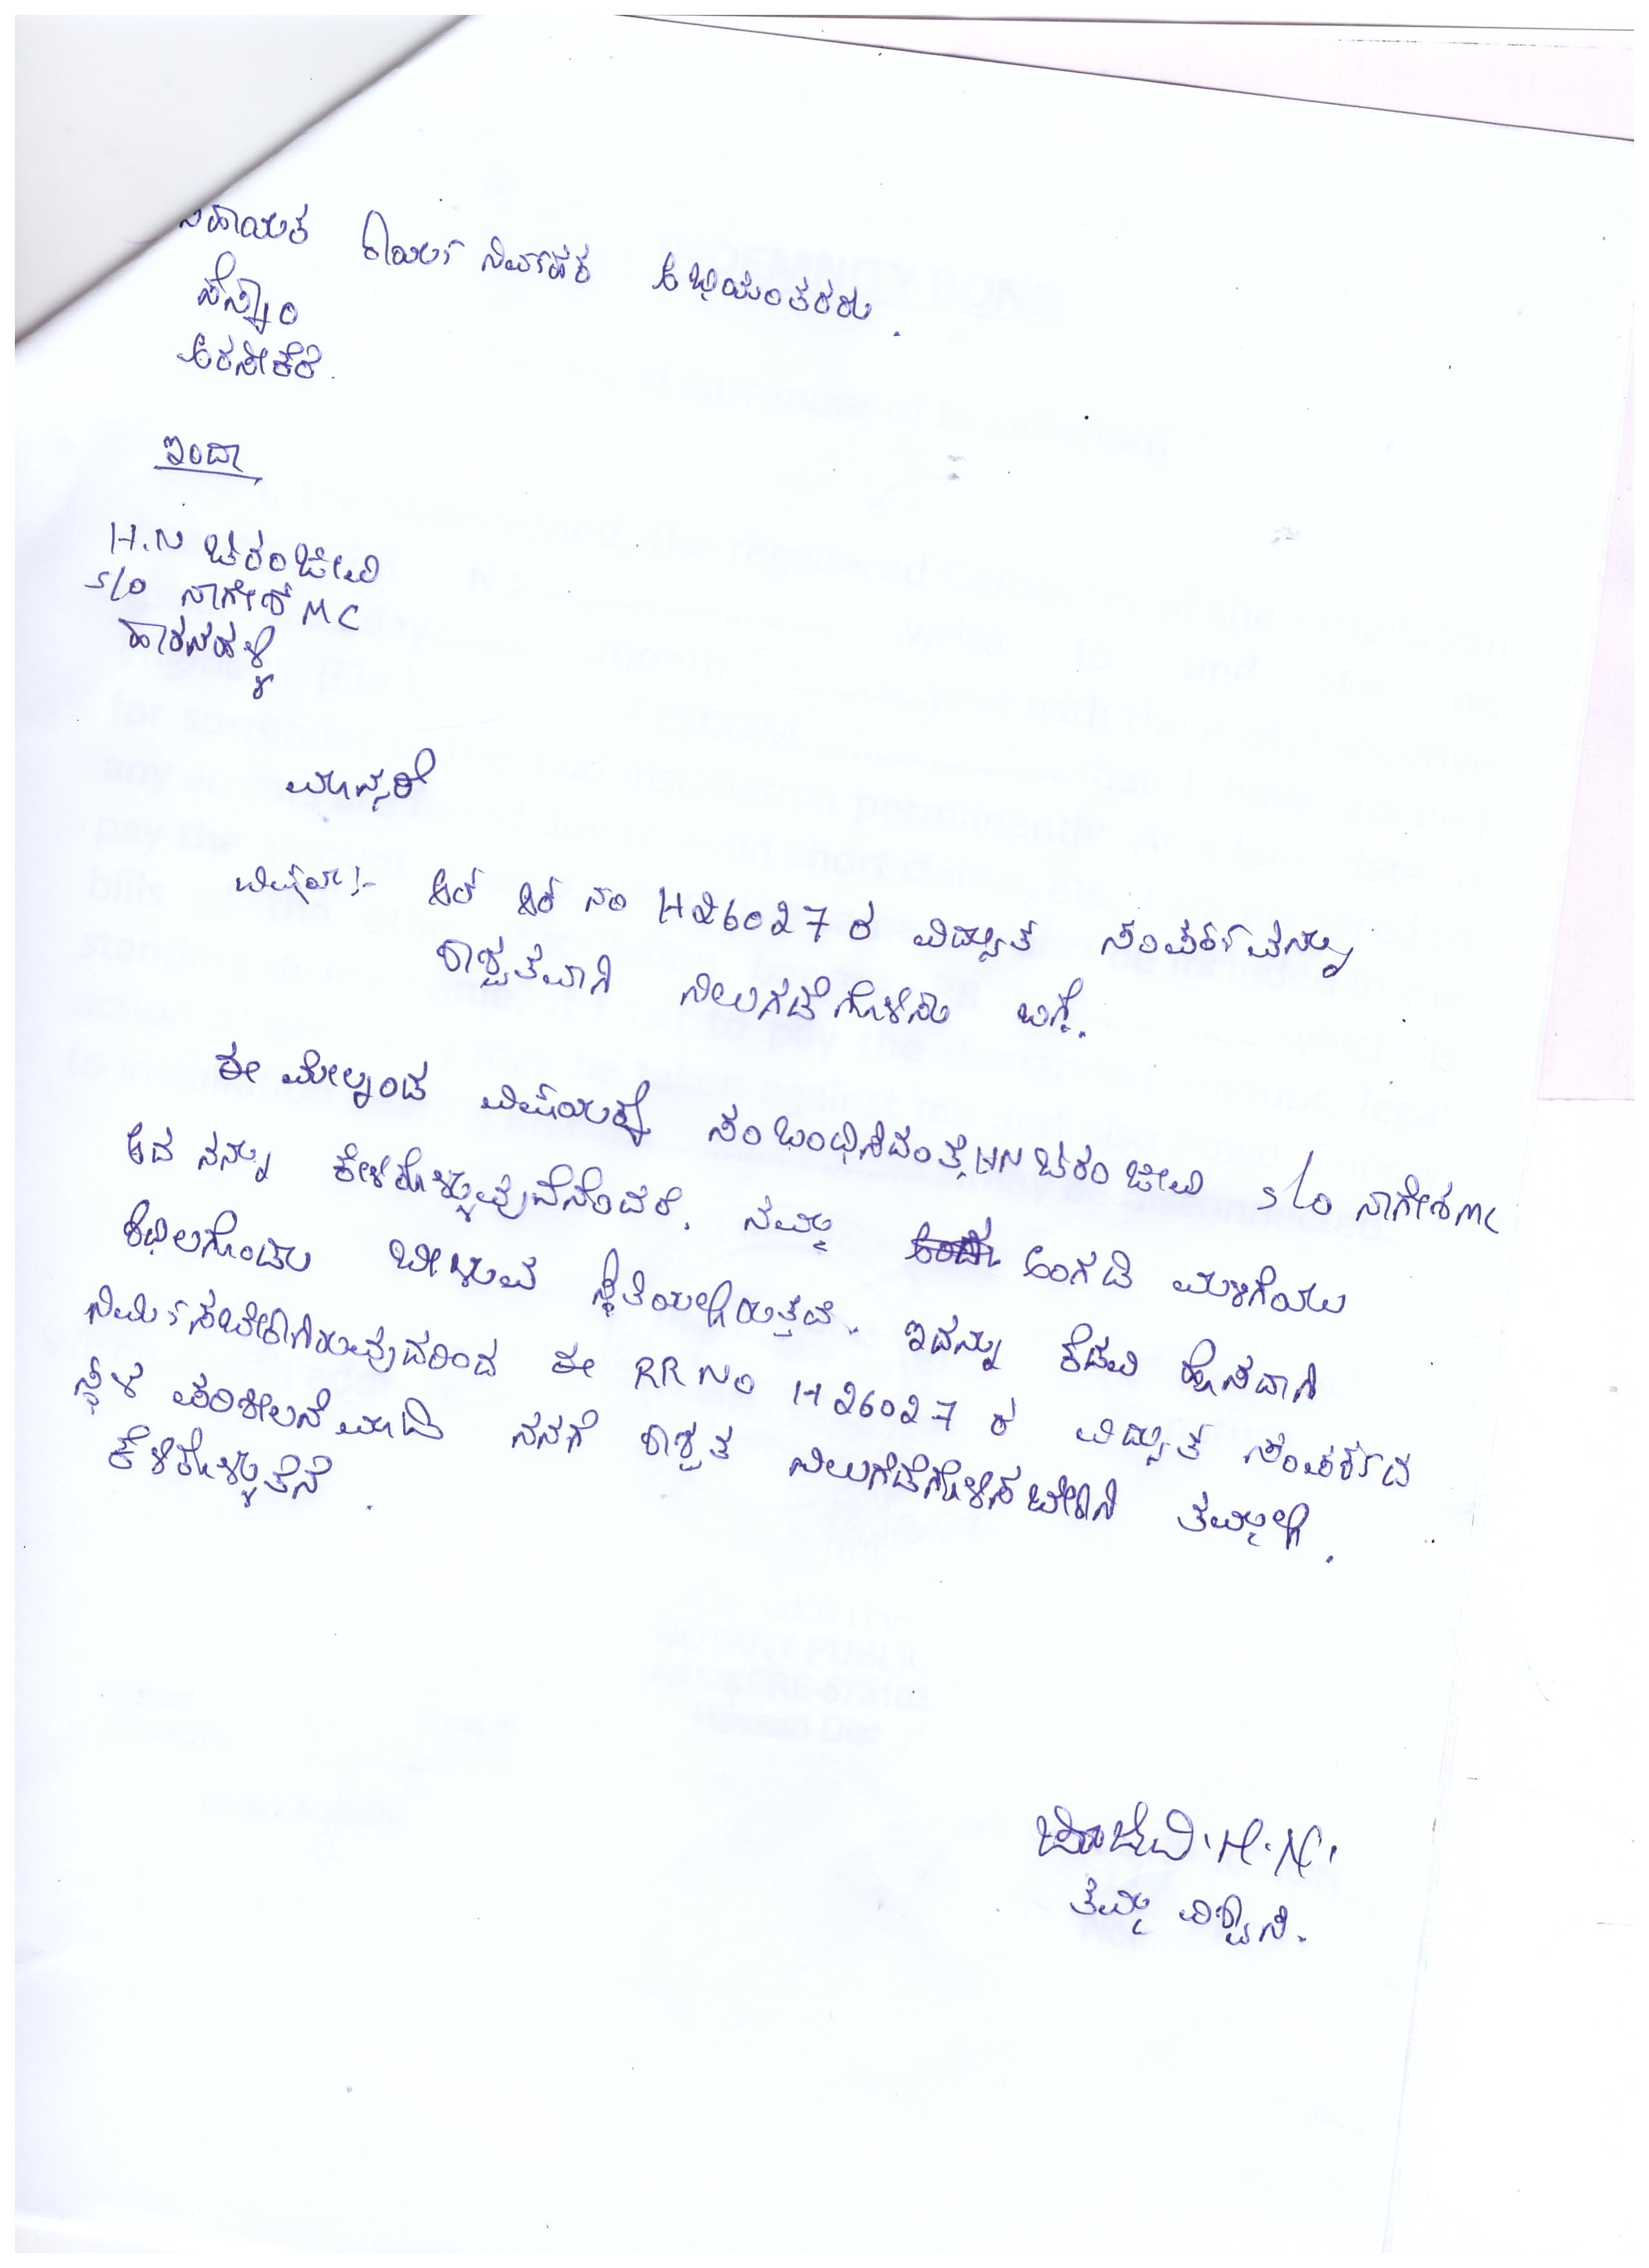 ಸಹಾಯಕ ಕಾರ್ಯ ನಿರ್ವಾಹಕ ಅಭಿಯಂತರರು.
ಸೆಸ್ಕಾಂ
ಅರಸೀಕೆರೆ.
ಇಂದಾ
H.N ಚಿರಂಜೀವಿ
S/O ನಾಗೇಶ MC
ಹಾರನಹಳ್ಳಿ
ಮಾನ್ಯರೆ
ವಿಷಯ:- ಆರ್ ಆರ್ ನಂ H26027 ರ ವಿದ್ಯುತ ಸಂಪರ್ಕವನ್ನು
ಶಾಶ್ವತವಾಗಿ ನಿಲುಗಡೆಗೊಳಿಸುವ ಬಗ್ಗೆ.
ಈ ಮೇಲ್ಕಂಡ ವಿಷಯಕ್ಕೆ ಸಂಬಂಧಿಸಿದಂತೆ HN ಚಿರಂಜೀವಿ S/O ನಾಗೇಶ MC
ಆದ ನನ್ನು ಕೇಳಿಕೊಳ್ಳುವುದೆನೆಂದರೆ. ನಮ್ಮ ಅಂಗಡಿ ಮಳಿಗೆಯು
ಶಿಥಿಲಗೊಂಡು ಬೀಳುವ ಸ್ಥಿತಿಯಲ್ಲಿರುತ್ತದೆ. ಇದನ್ನು ಕೆಡವಿ ಹೊಸದಾಗಿ
ನಿರ್ಮಿಸಬೇಕಾಗಿರುವುದರಿಂದ ಈ RR NO H26027 ರ ವಿದ್ಯುತ ಸಂಪರ್ಕದ
ಸ್ಥಳ ಪರಿಶೀಲನೆ ಮಾಡಿ ನನಗೆ ಶಾಶ್ವತ ನಿಲುಗಡೆಗೊಳಿಸಬೇಕಾಗಿ ತಮ್ಮಲ್ಲಿ.
ಕೆಳಿಕೊಳ್ಳುತೆನೆ.
H.N.
ತಮ್ಮ ವಿಶ್ವಾಸಿ.